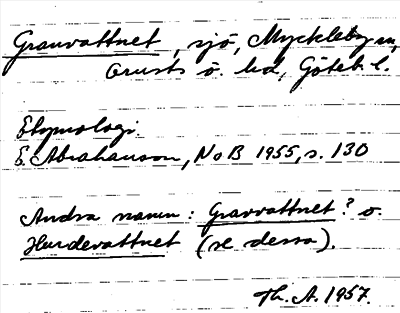 Granvattnet, sjö, Myckleby sn,
Orusts ö. hd, Göteb. l.
Etymologi
E. Abrahamson, NoB 1955, s. 130
Andra namn: Gravvattnet? o.
Hurdevattnet (se dessa).
Th. A. 1957.